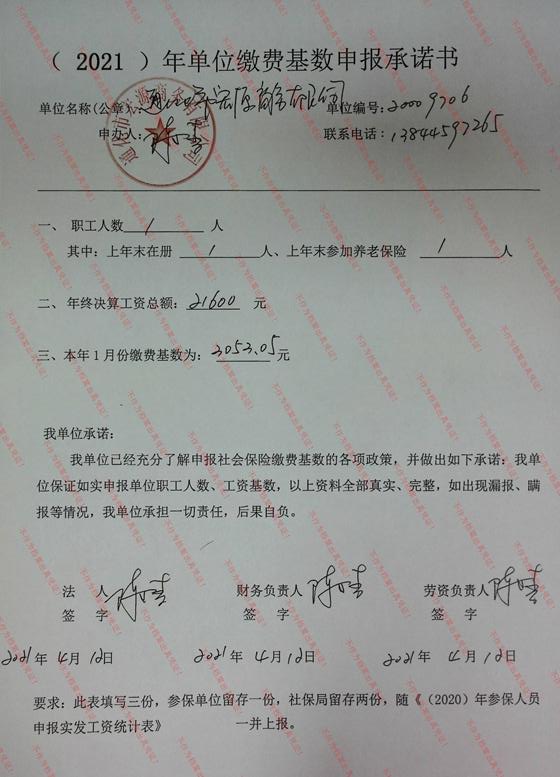 （ 2021 ）年单位缴费基数申报承诺书
单位名称(公章): 通化市宏源商务有限公司 单位编号: 20009706
申办人: 陈 联系电话: 13844597265
一、 职工人数 1 人
其中：上年末在册 1 人、上年末参加养老保险 1 人
二、 年终决算工资总额: 21600 元
三、本年1月份缴费基数为: 3053.05 元
我单位承诺:
我单位已经充分了解申报社会保险缴费基数的各项政策，并做出如下承诺：我单
位保证如实申报单位职工人数、工资基数，以上资料全部真实、完整，如出现漏报、瞒
报等情况，我单位承担一切责任，后果自负。
法 人 陈 财务负责人 陈 劳资负责人 陈
签 字 签 字 签 字
2021年 4月 12日 2021年 4月12日 2021年 4月12日
要求：此表填写三份，参保单位留存一份，社保局留存两份，随《（2020）年参保人员
申报实发工资统计表》 一并上报。